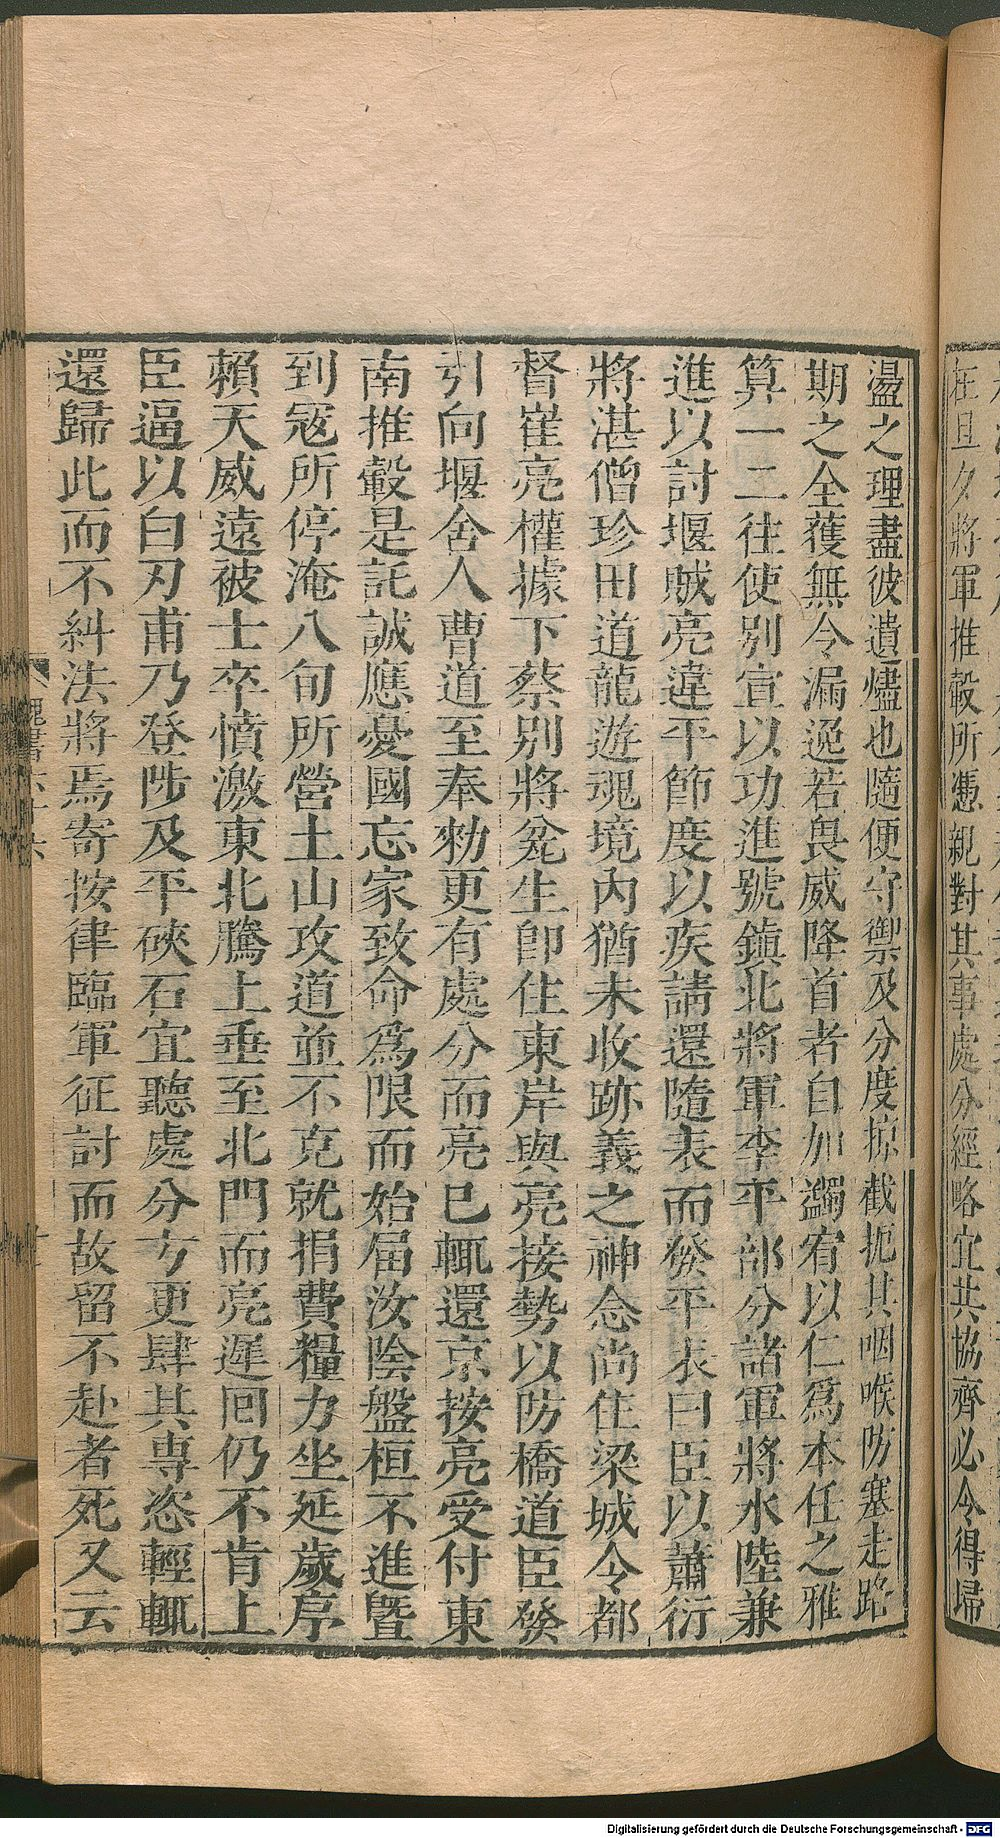 在旦夕將軍推轂所憑親對其事處分經略宜共協齊必令得掃
盪之理盡彼遺燼也隨便守禦及分度掠截扼其咽喉防塞走路
期之全獲無令漏逸若畏威降首者自加蠲宥以仁爲本任之雅
算一二往使別宣以功進號鎭北將軍李平部分諸軍將水陸兼
進以討堰賊亮違平節度以疾請還隨表而發平表曰臣以蕭衍
將湛僧珍田道龍遊魂境內猶未收跡義之神念尚住梁城令都
督崔亮權據下蔡別將㝹生即住東岸與亮接勢以防橋道臣發
引向堰舍人曹道至奉勑更有處分而亮已輒還京按亮受付東
南推轂是託誠應憂國忘家致命爲限而始届汝陰盤桓不進曁
到寇所停淹八旬所營土山攻道並不克就捐費糧力坐延歲序
賴天威遠被士卒憤激東北騰上垂至北門而亮遲囘仍不肯上
臣逼以白刃甫乃登陟及平硤石宜聽處分方更肆其專恣輕輒
還歸此而不糾法將焉寄按律臨軍征討而故留不赴者死又云
魏書六十六
Digitalisierung gefördert durch die Deutsche Forschungsgemeinschaft - DFG